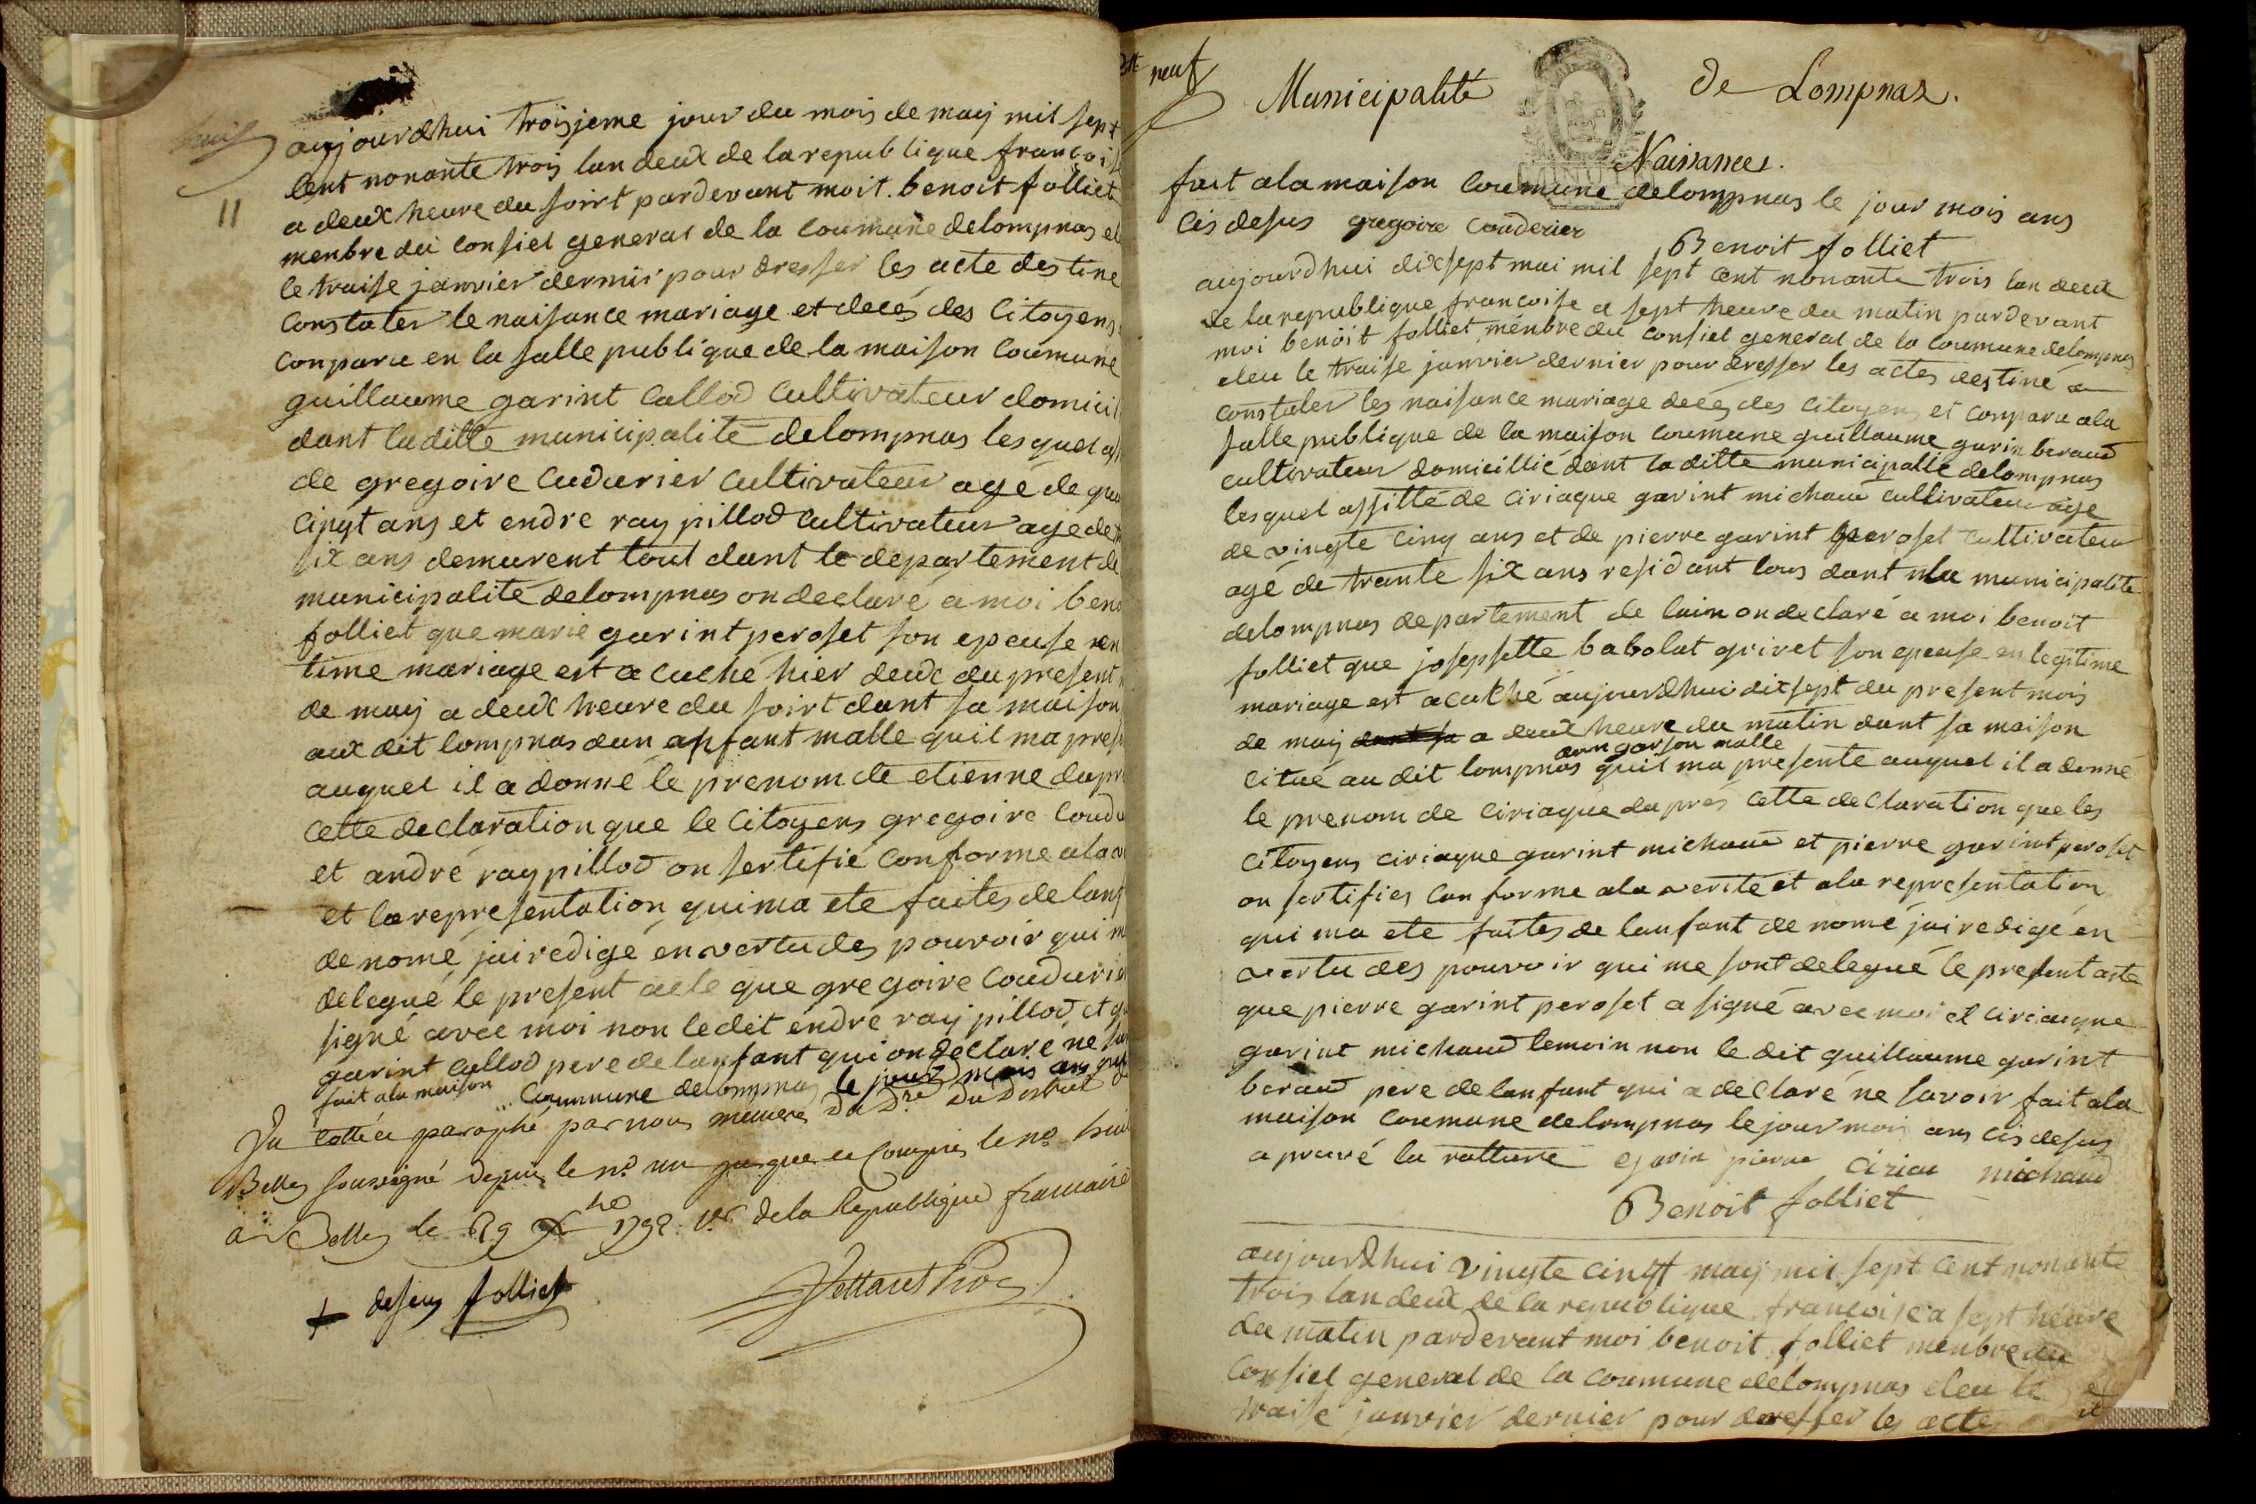 huit
11
aujourdhui troisjeme jour du mois de may mil sept
cent nonante trois lan deux de la republique françois
a deux heure du soirt pardevant moit benoit folliet
menbre du consiel general de la coumune delompnas el
le traise janvier dernier pour dresser les acte destine
constater le naisance mariage et decés des Citoyens
conparu en la salle publique de la maison coumune
guillaume garint callod cultivateur domicil
dant la ditte municipalité delompnas les quel ass
de gregoire cudurier cultivateur agé de qua
cinqt ans et endre ray pillod cultivateur agé de
six ans demurent tout dant le departement de
municipalité delompnas on declaré a moi beno
folliet que marie garint peroset son epeuse en
time mariage est acuché hier deux du present
de may a deux heure du soirt dant sa maison
aux dit lompnas dun anfant malle quil ma pres
auquel il a donné le prenom de etienne dapr
cette declaration que le Citoyens gregoire Coudu
et andré ray pillod on sertifié conforme ala
et la representation qui ma eté faites de lanf
de nomé jai redigé en vertu des pouvoir qui m
delegué le present acte que gregoire Couduri
signé avec moi non ledit endre ray pillod et g
garint callod pere de lanfant qui on declaré ne sa
fait ala maison Coumune delompnas le jour mois ans
Vu cotté et paraphé par nous du D.re Du District
Belley soussigné depuis le n.o un jusques et compris le n.o huit
a Belley le 29 Xbre 1792 1.er de la Republique francaise
+ desus folliet
neuf
Municipalité de Lompnas.
Naissances.
fait ala maison coumune delompnas le jour mois ans
cis desus gregoire couderier
Benoit folliet
aujourdhui dixsept mai mil sept cent nonante trois lan deux
de la republique francoise a sept heure du matin pardevant
moi benoit folliet menbre du consiel general de la coumune delompnas
eleu le traise janvier dernier pour dresser les actes destiné a
constater les naisance mariage decés des citoyens et conparu ala
salle publique de la maison coumune guillaume garin beraud
cultivateur domicillié dant la ditte municipallé delompnas
lesquel assitté de ciriaque garint michaud cultivateur age
de vingte cinq ans et de pierre garint peroset cultivateur
agé de trante six ans residant tous dant la municipalité
delompnas departement de lain on declaré a moi benoit
folliet que josepsette babolat grivet son epeuse en legitime
mariage est acuché aujourdhui dixsept du present mois
de may dant sa a deux heure du matin dant sa maison
dun garson malle
citué au dit lompnas quil ma presenté auquel il a donné
le prenom de ciriaque dapres cette declaration que les
citoyens ciriaque garint michaud et pierre garint peroset
on sertifies conforme ala verité et ala representation
qui ma eté faites de lanfant de nomé jai redigé en
vertu des pouvoir qui me sont delegué le present acte
que pierre garint peroset a signé avec moi et ciriaque
garint michaud temoin non le dit guillaume garint
beraud pere de lanfant qui a declaré ne savoir fait ala
maison coumune delompnas le jour mois ans cis desus
a prouvé la ratture garin pierre ciriac michaud
Benoit folliet
aujourdhui vingte cinqt may mil sept cent nonante
trois lan deux de la republique francoise a sept heure
du matin pardevant moi benoit folliet menbre du
consiel general de la coumune delompnas eleu le
traise janvier dernier pour dresser les actes